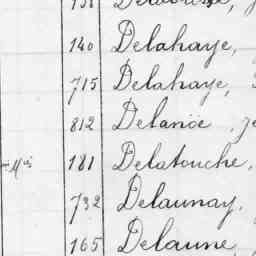 140 Delahaye,
715 Delahaye,
812 Delanöe, je
181 Delatouche,
732 Delaunay,
165 Delaune,